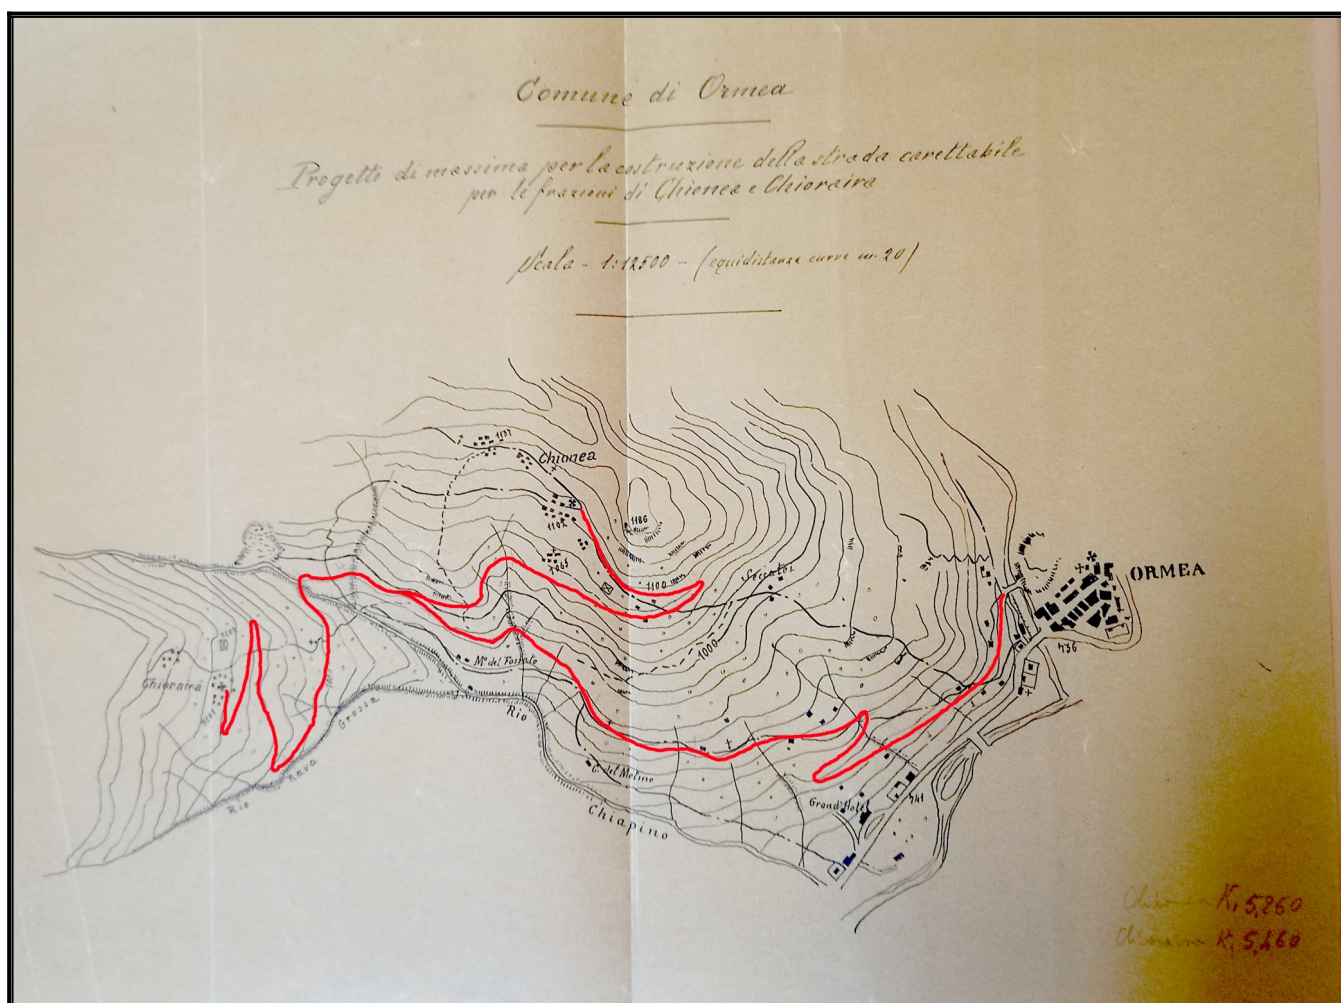 Comune di Ormea
Progetto di massima per la costruzione della strada carettabile
per le frazioni di Chionea e Chioraira
Scala - 1:12500 - (equidistanza curve m. 20)
1137
Chionea
1102
1186
1065
1100
Seccatoi
ORMEA
1000
736
Mo del Fossato
Chioraira
Grossa
Rio
Rava
Rio
C. del Molino
Chiapino
Grand Hotel
741
Chionea K. 5,260
Chioraira K. 5,460